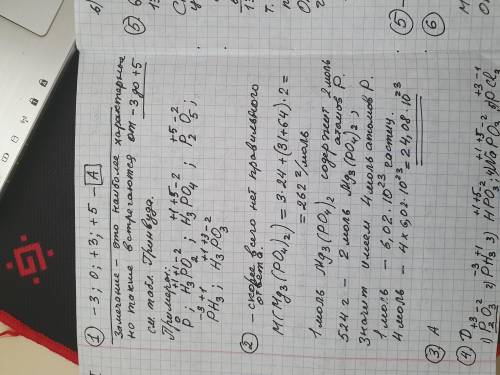 ① -3; 0; +3; +5 - A
Замечание - это наиболее характерные
но также встречаются от -3 до +5
см. табл. Гринвуда.
Примеры:
0 +1 +1 -2 +1 +5 -2 +5 -2
P; H3PO2; H3PO4; P2O5;
-3 +1 +1 +3 -2
PH3; H3PO3
② - скорее всего нет правильного
ответа.
M(Mg3(PO4)2) = 3·24 + (31+64)·2 =
= 262 г/моль
1 моль Mg3(PO4)2 содержит 2 моль
атомов P.
524 г - 2 моль Mg3(PO4)2,
Значит имеем 4 моль атомов P.
1 моль - 6,02·10^23 частиц.
4 моль - 4×6,02·10^23 = 24,08·10^23
③ A
④ D
+3 -2 -3 +1 +1 +5 -2
1) P2O3 2) PH3 3) HPO3
⑤
⑥